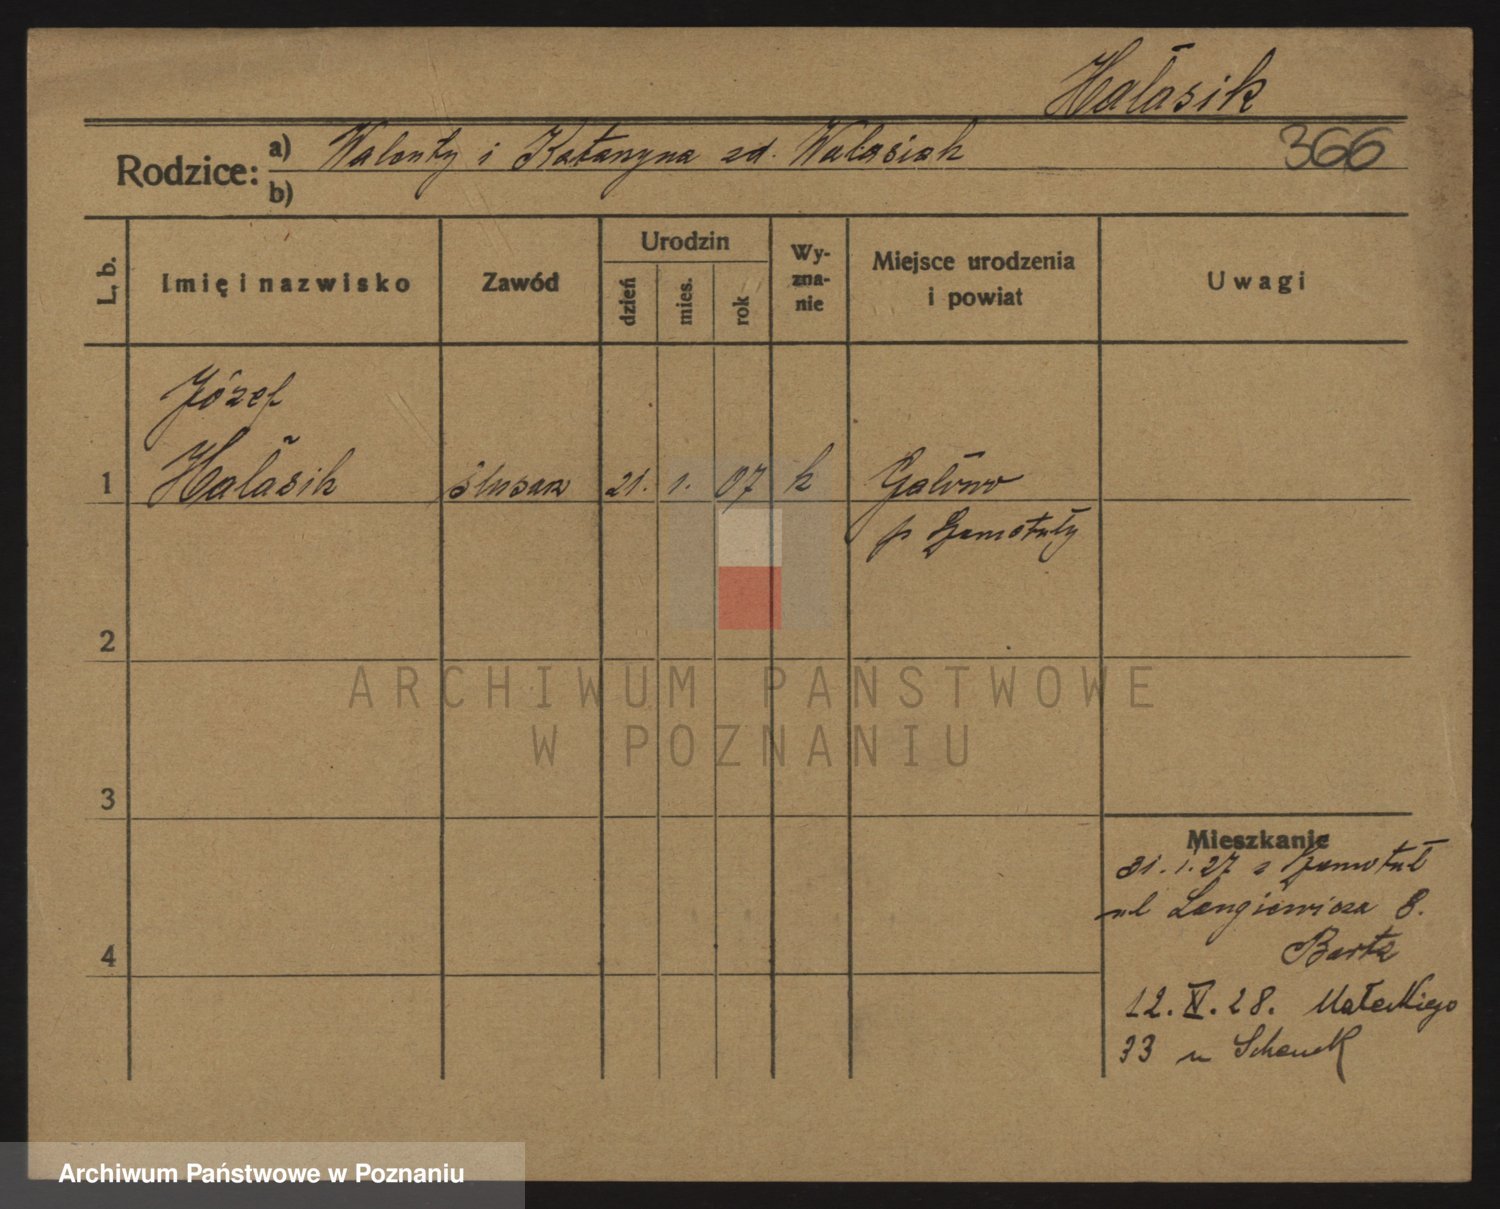 Hałasik
366
Rodzice: a) Walenty i Katarzyna zd. Walasiak
b)
L. b.
Imię i nazwisko
Zawód
Urodzin
dzień
mies.
rok
Wy-
zna-
nie
Miejsce urodzenia
i powiat
Uwagi
Józef
1 Hałasik ślusarz 21. 1. 07 k Gałowo
p Szamotuły
2
3
4
Mieszkanie
31. 1. 27 z Szamotuł
ul Langiewicza 8.
Bartz
12. XI. 28. Małeckiego
33 u Schenck
ARCHIWUM PAŃSTWOWE
W POZNANIU
Archiwum Państwowe w Poznaniu